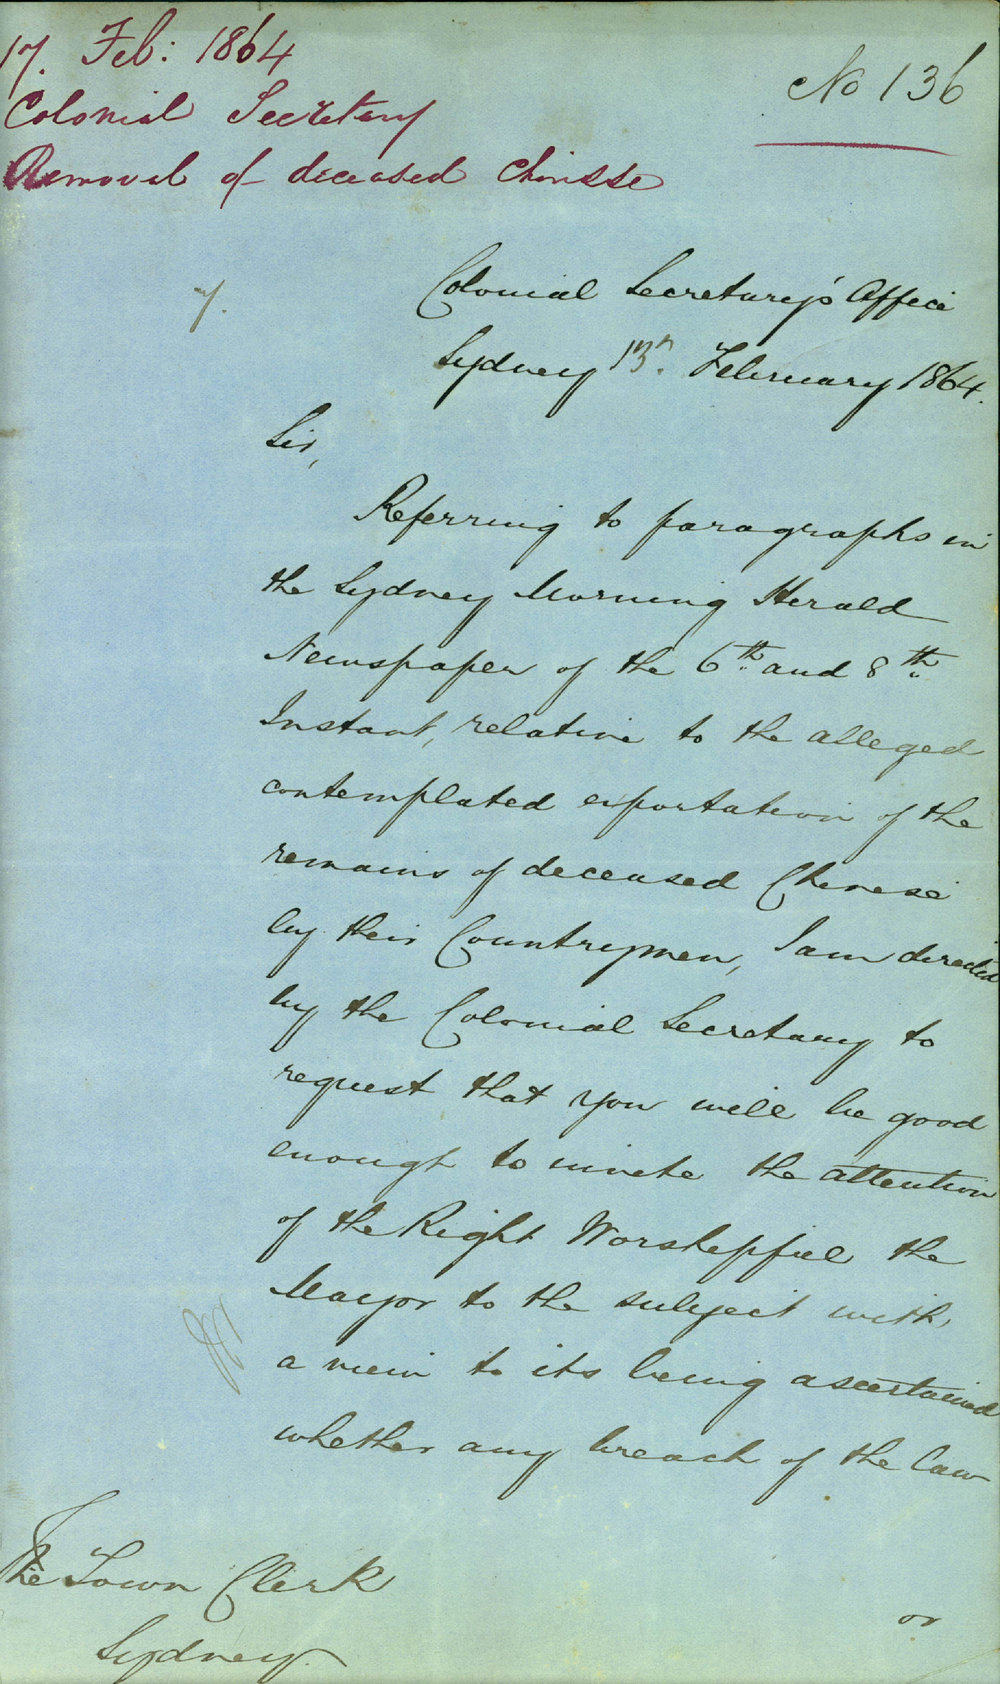 17. Feb: 1864
No 136
Colonial Secretary
Removal of deceased Chinese
Colonial Secretary's Office
Sydney 13th. February 1864.
Sir,
Referring to paragraphs in
the Sydney Morning Herald
Newspaper of the 6th and 8th
Instant, relative to the alleged
contemplated exportation of the
remains of deceased Chinese
by their Countrymen, I am directed
by the Colonial Secretary to
request that you will be good
enough to invite the attention
of the Right Worshipful the
Mayor to the subject with
a view to its being ascertained
whether any breach of the law
The Town Clerk
Sydney.
or